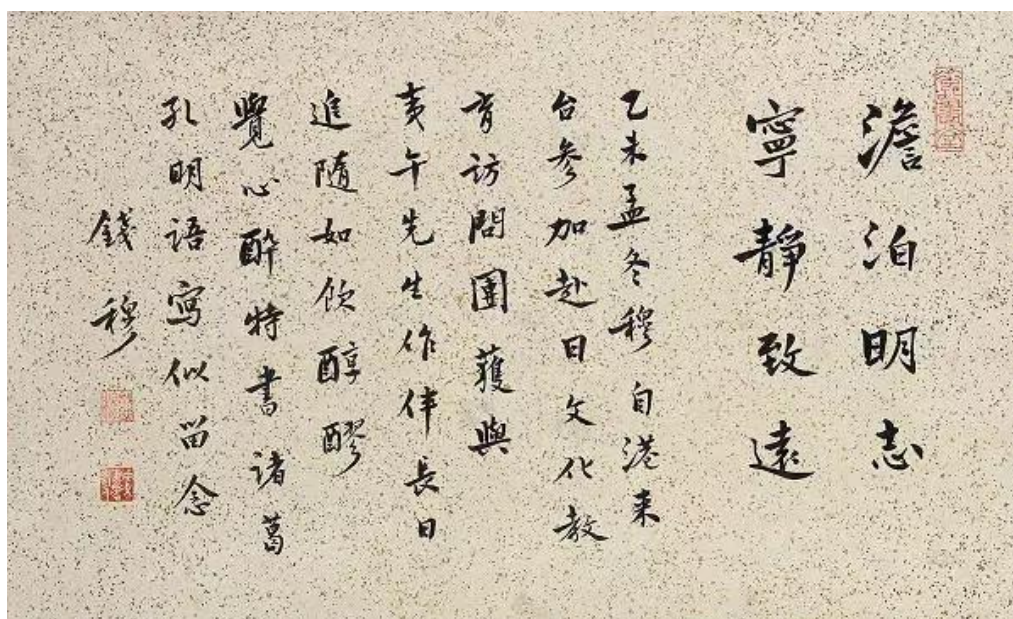 澹泊明志
寧靜致遠
乙未孟冬穆自港来
台參加赴日文化教
育訪問團獲與
夷午先生作伴長日
追隨如飲醇醪
覺心醉特書諸葛
孔明語寫似留念
錢穆